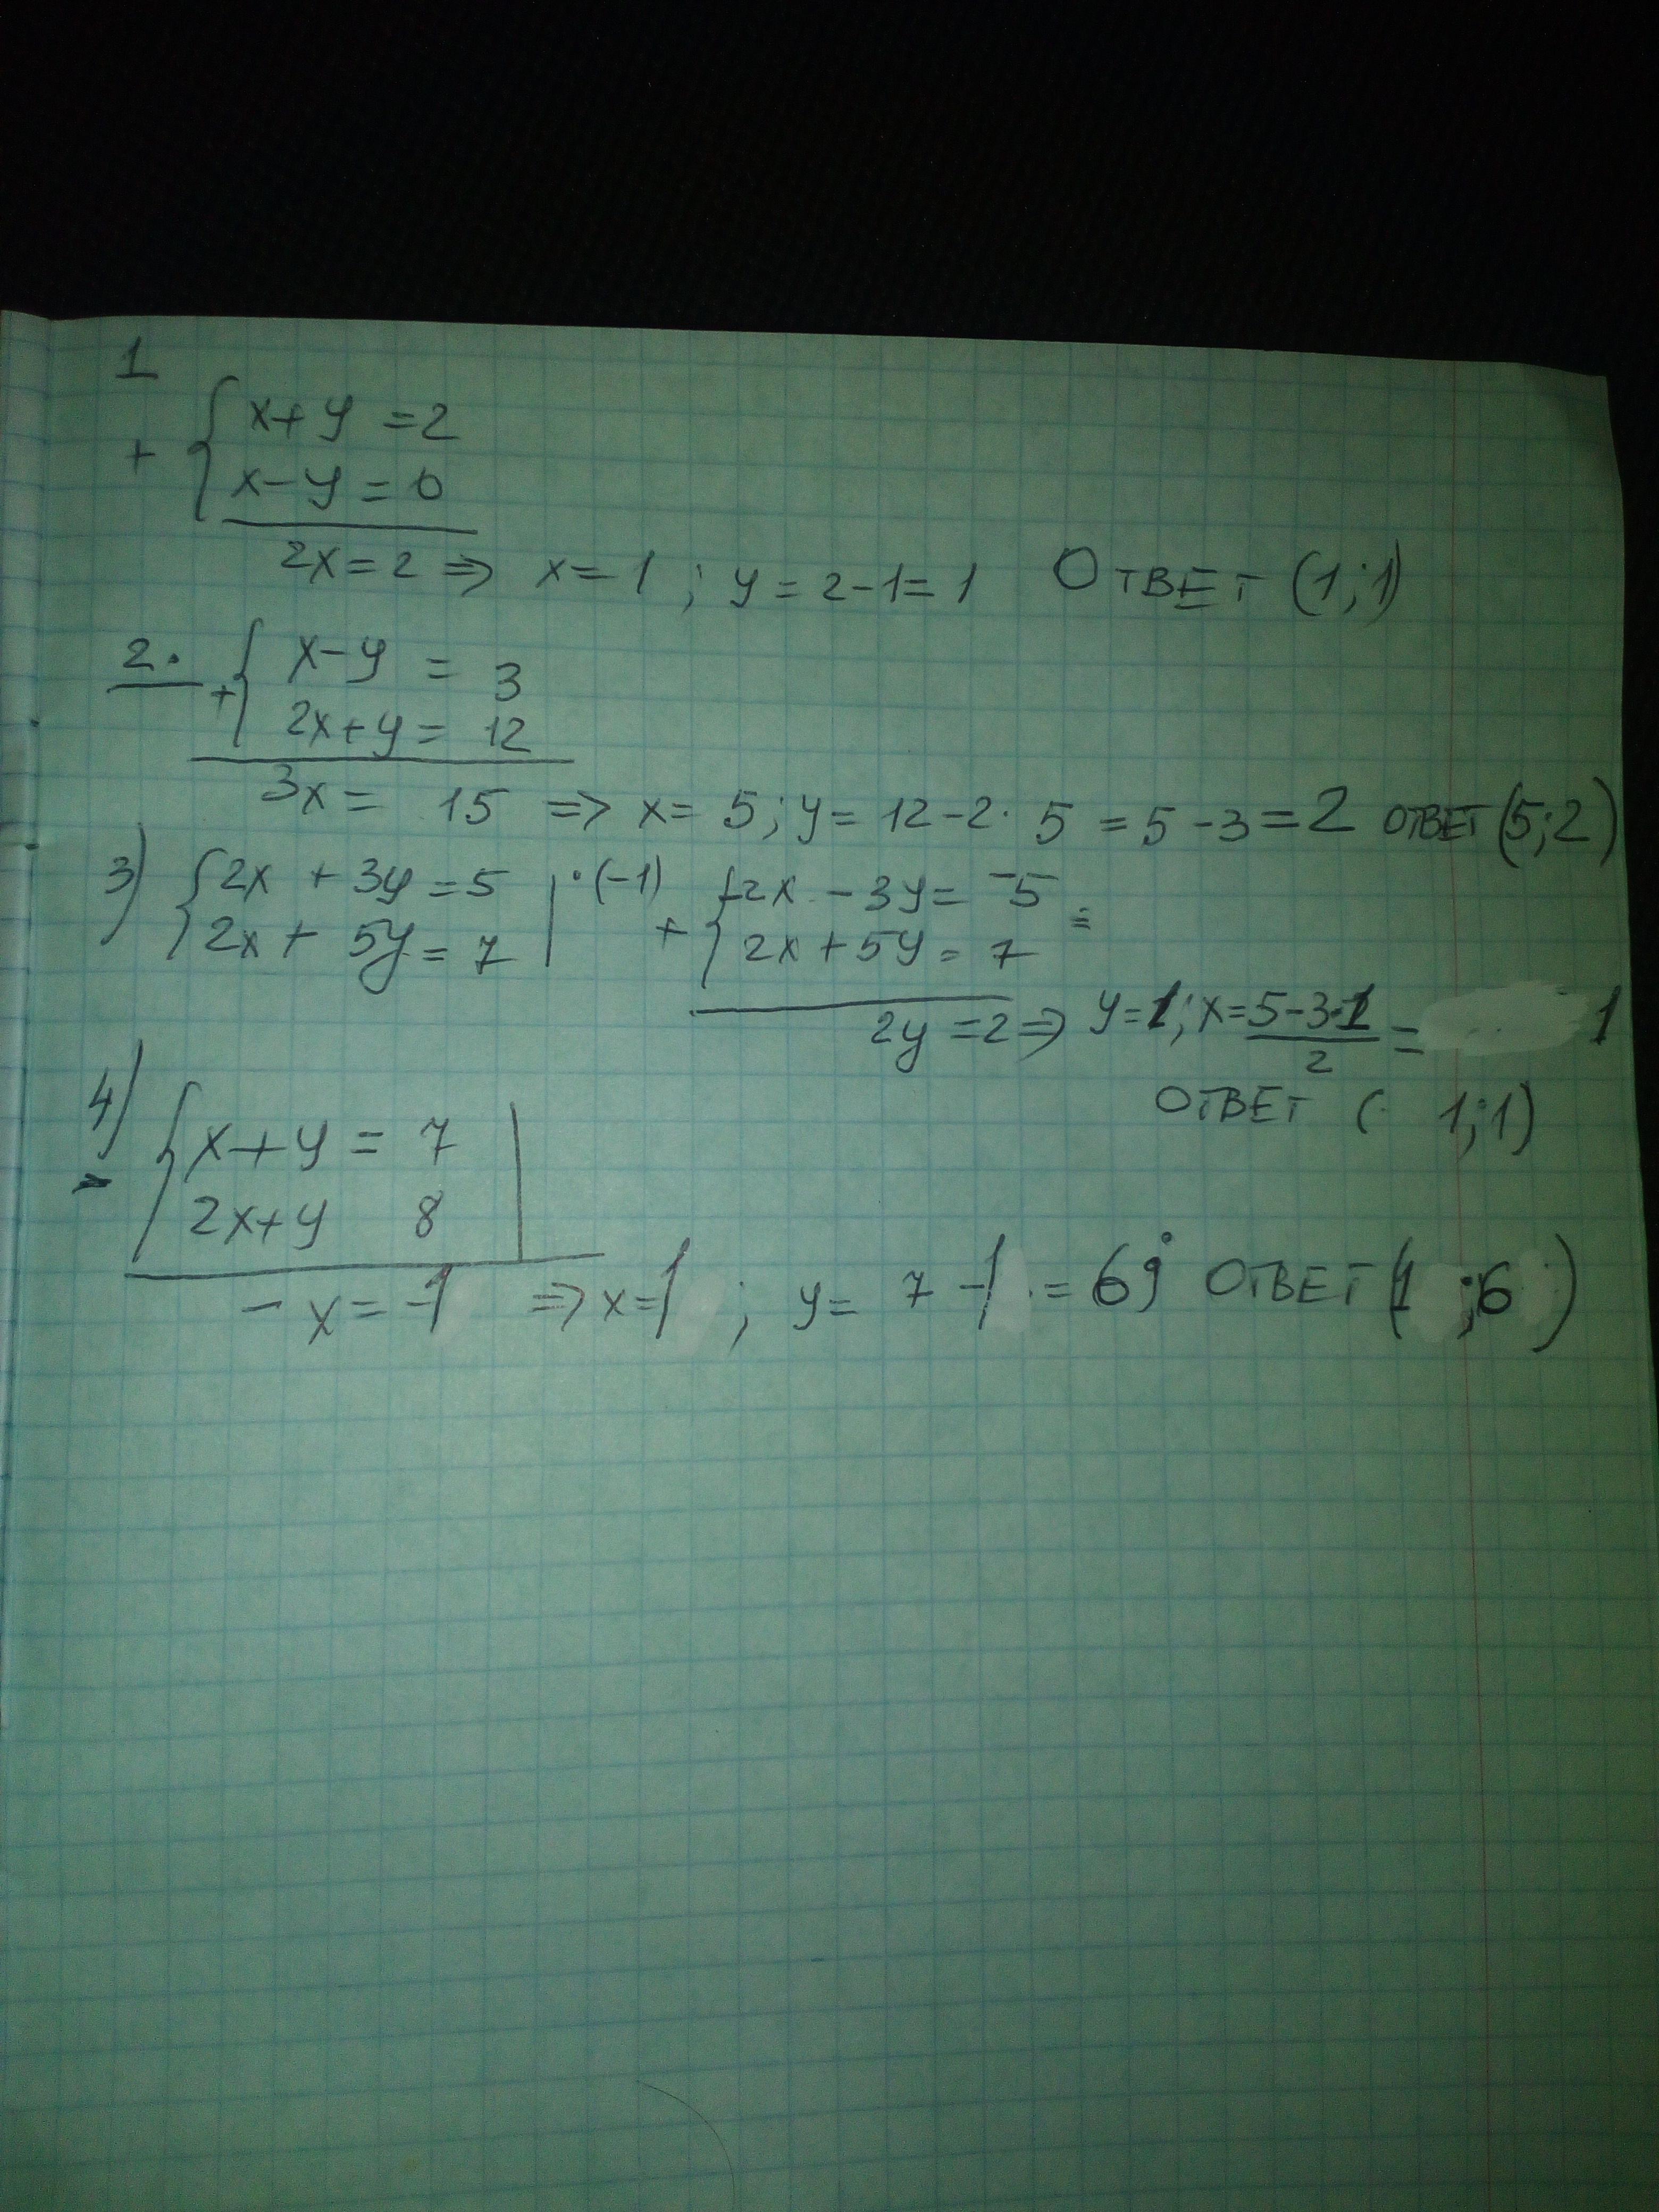 1
+ { x+y =2
x-y=0
2x=2 => x=1 ; y=2-1=1 ОТВЕТ (1;1)
2. + { x-y = 3
2x+y= 12
3x= 15 => x= 5; y= 12-2· 5 = 5-3=2 ОТВЕТ (5;2)
3) { 2x + 3y =5 | ·(-1) + { -2x - 3y= -5 =
2x+ 5y= 7 2x+5y= 7
2y =2 => y=1; x= 5-3·1 / 2 = 1
ОТВЕТ ( 1;1)
4) - { x+y = 7
2x+y 8
-x= -1 => x=1 ; y= 7 -1 = 6; ОТВЕТ (1 ;6 )